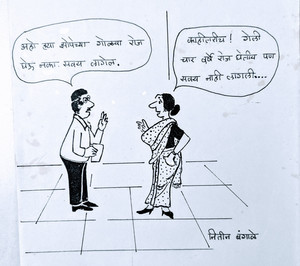 अहो ह्या झोपेच्या गोळ्या रोज
घेऊ नका. सवय लागेल.
काहीतरीच! गेली
चार वर्षे रोज घेतीय पण
सवय नाही लागली....
नितीन बंगाळे